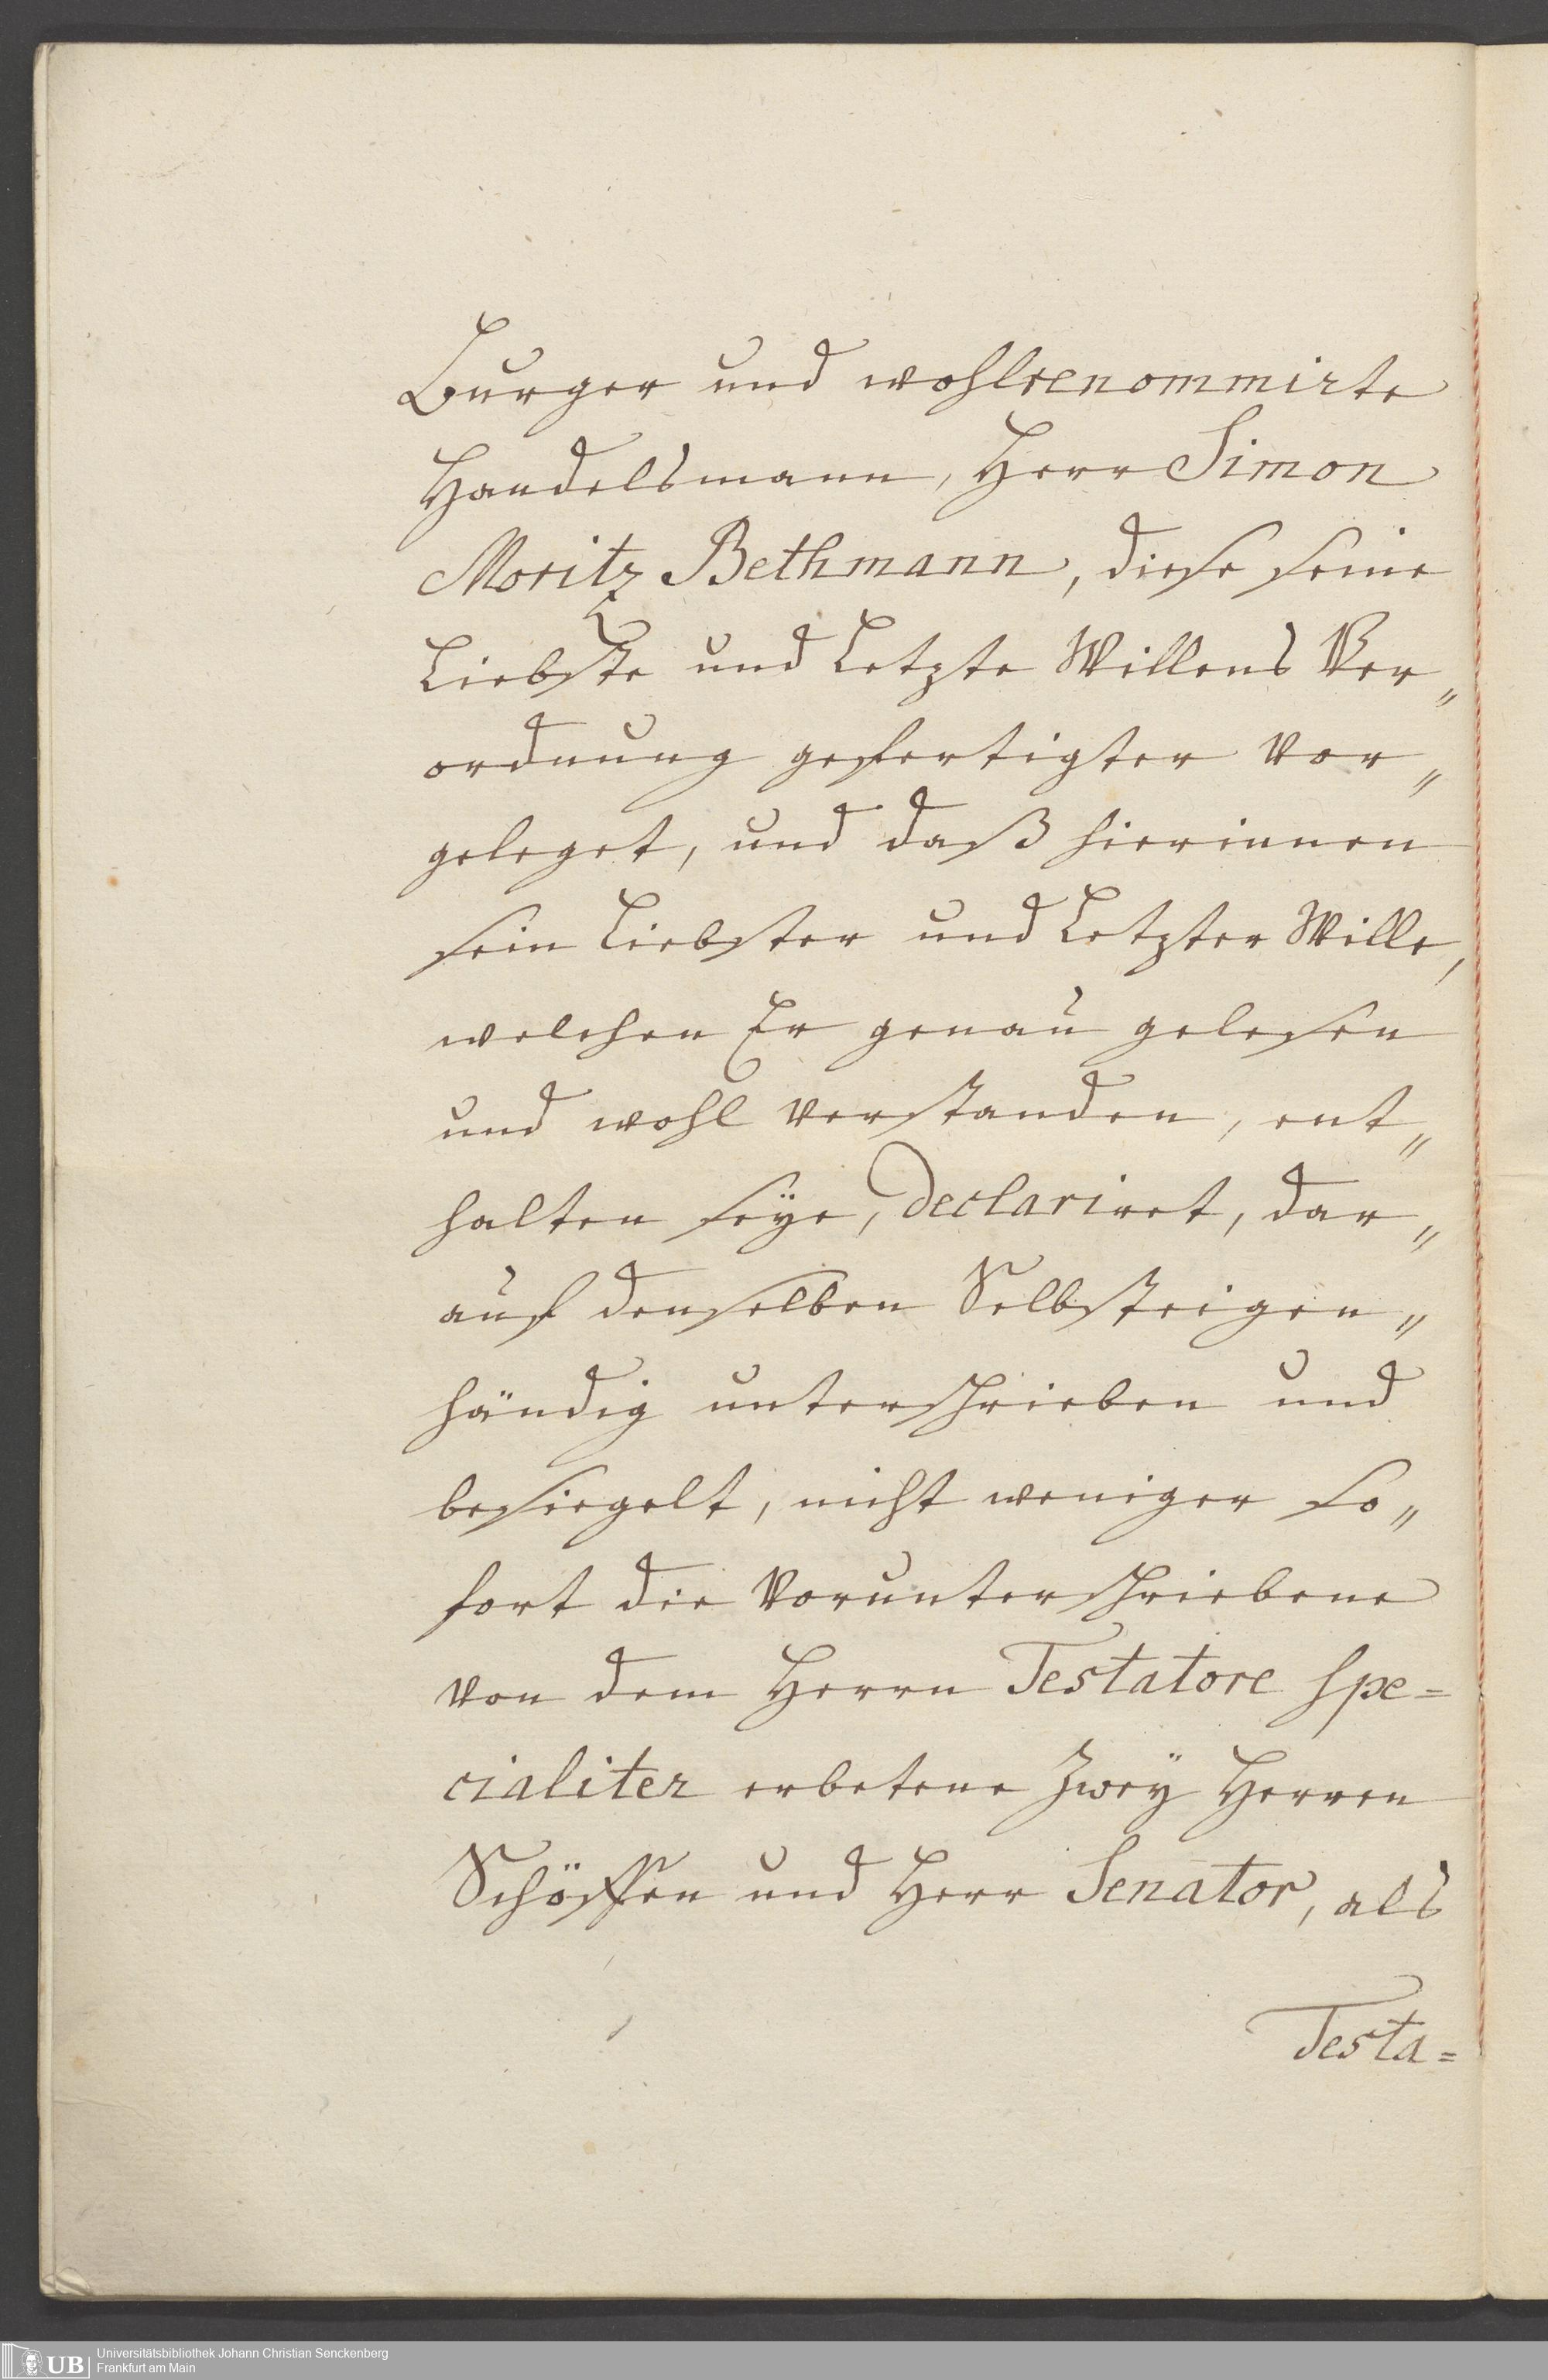 Burger und wohlrenommirte
Handelsmann, Herr Simon
Moritz Bethmann, diese seine
Liebste und Letzte Willens Ver„
ordnung gefertigter vor„
geleget, und daß hierinnen
sein Liebster und Letzter Wille,
welchen Er genau gelesen
und wohl verstanden, ent„
halten seÿe, declariret, dar„
auf denselben Selbsteigen„
händig unterschrieben und
besiegelt, nicht weniger so„
fort die Vorunterschriebene
von dem Herrn Testatore spe=
cialiter erbetene Zweÿ Herren
Schöffen und Herr Senator, als
Testa=
UB
Universitätsbibliothek Johann Christian Senckenberg
Frankfurt am Main